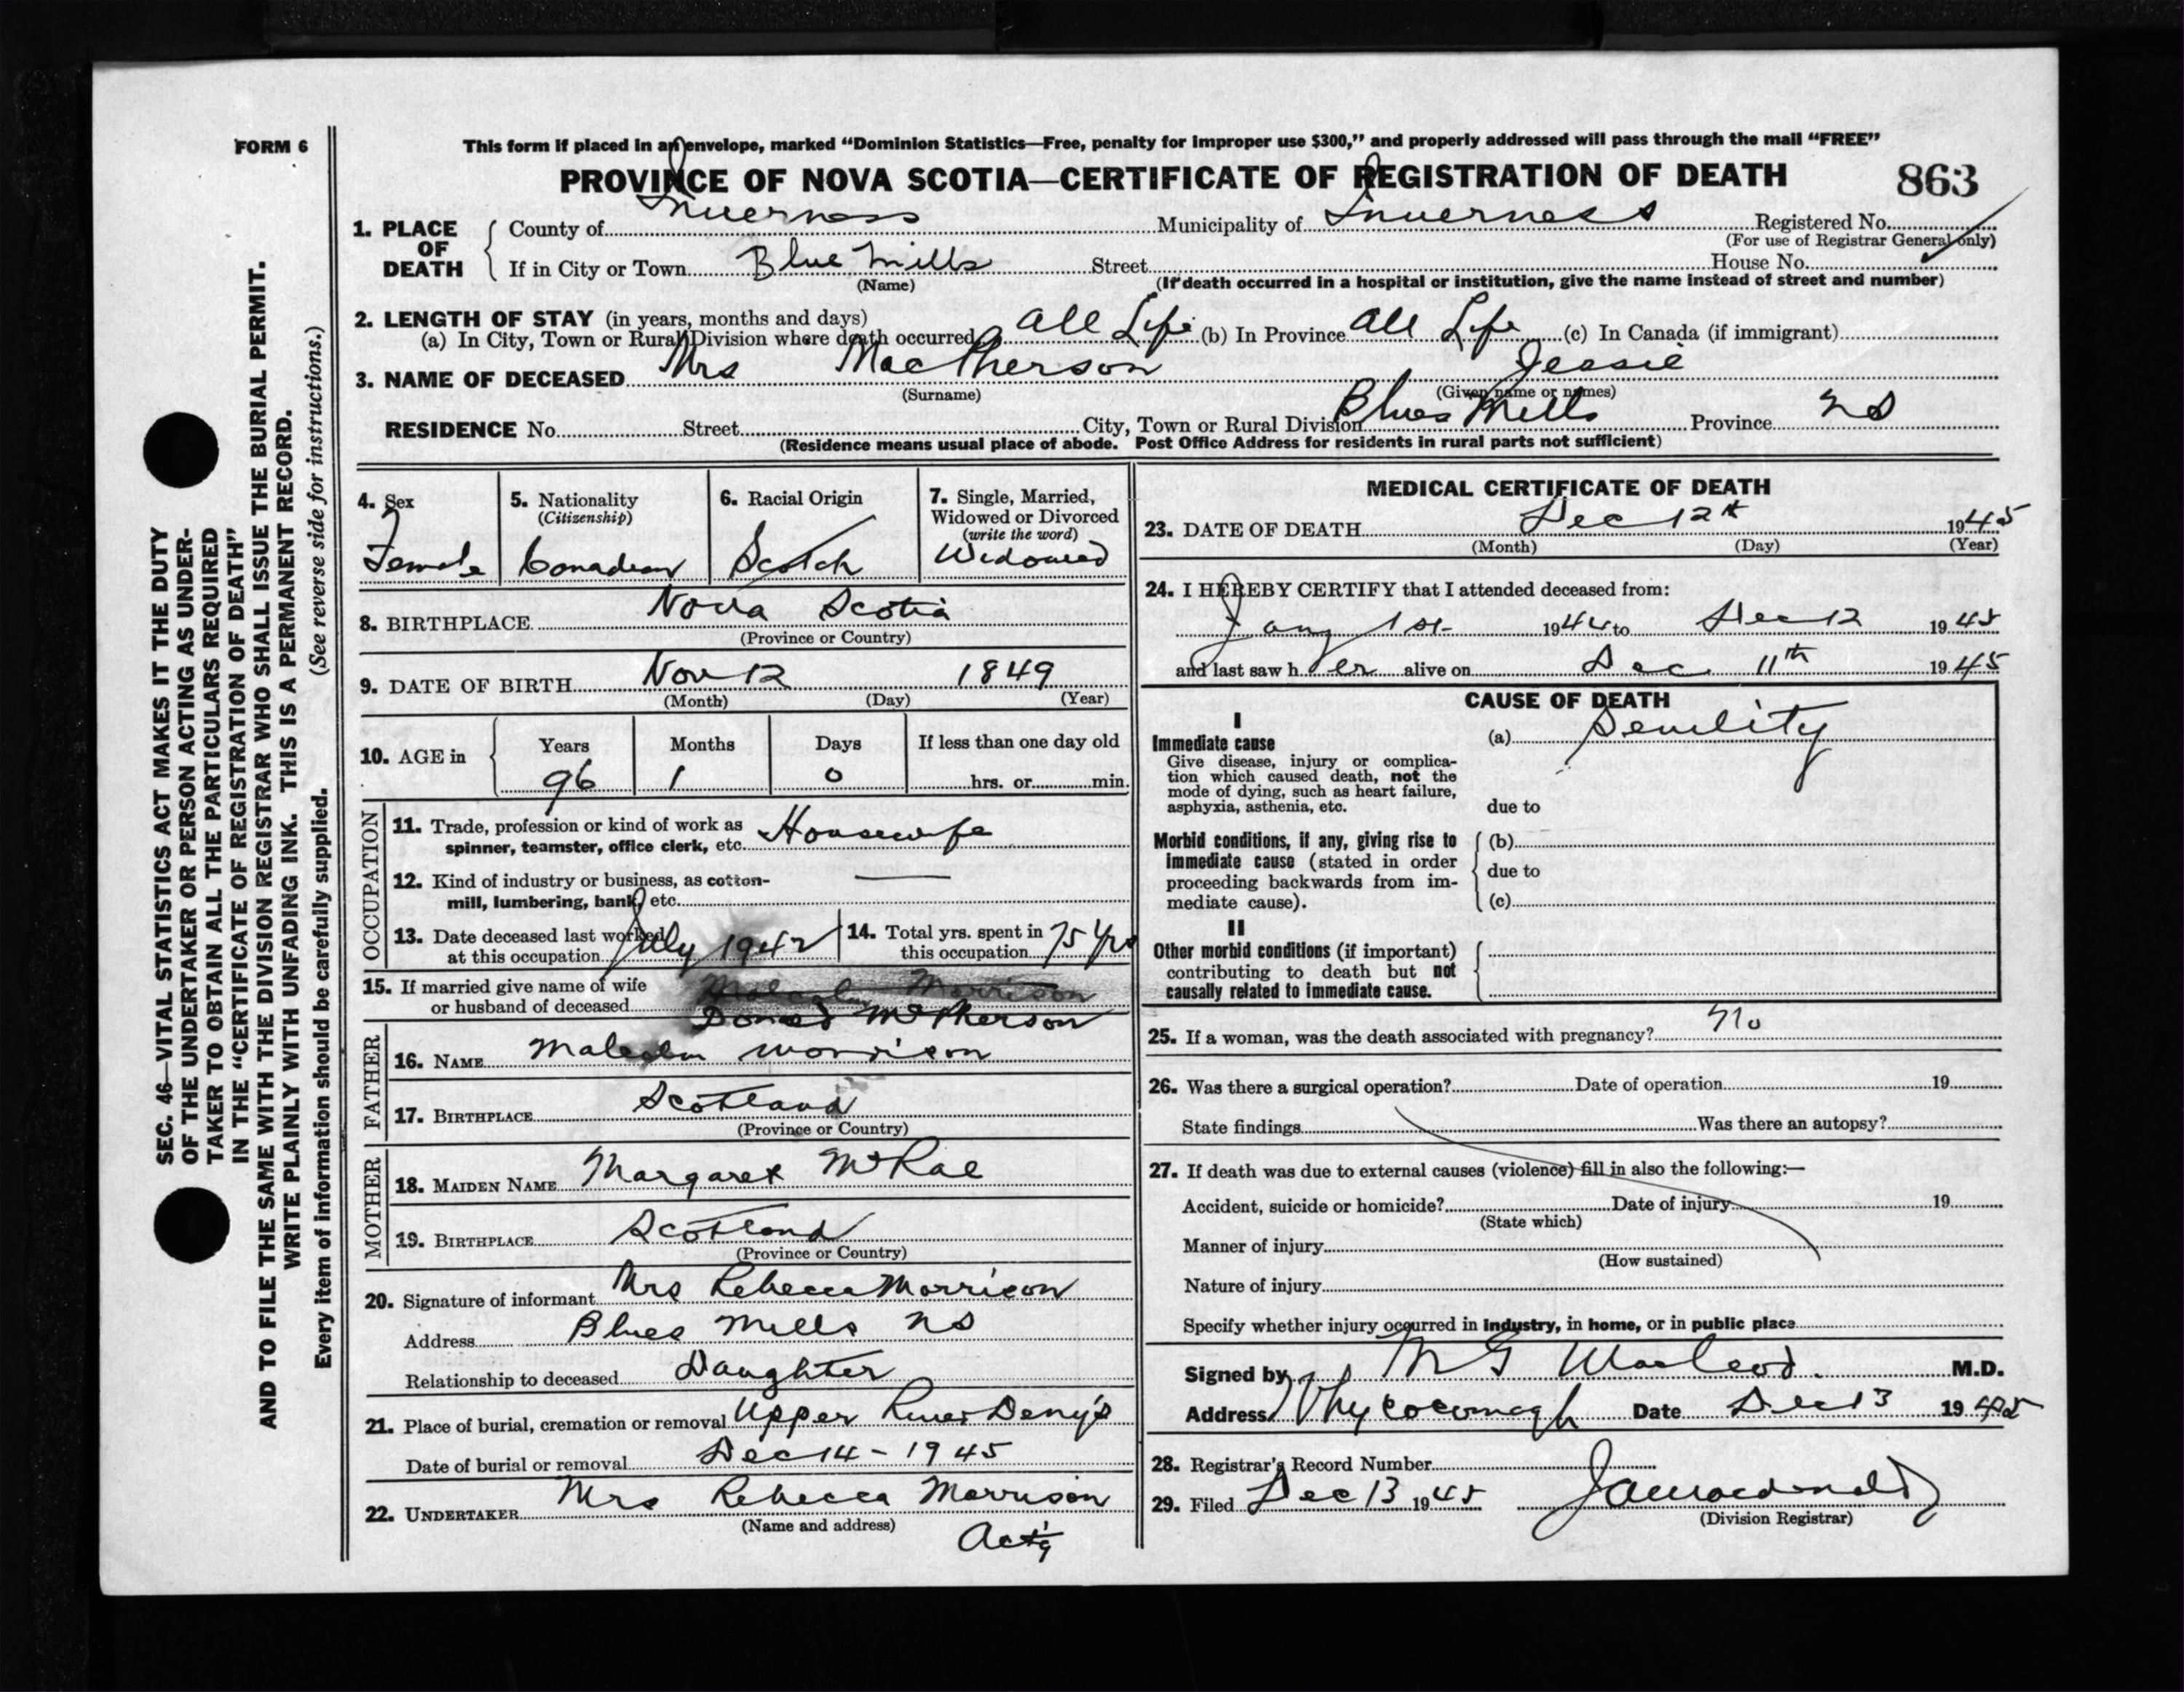 FORM 6
This form if placed in an envelope, marked "Dominion Statistics—Free, penalty for improper use $300," and properly addressed will pass through the mail "FREE"
PROVINCE OF NOVA SCOTIA—CERTIFICATE OF REGISTRATION OF DEATH 863
1. PLACE OF DEATH County of Inverness Municipality of Inverness Registered No.
(For use of Registrar General only)
If in City or Town Blue Mills Street House No.
(Name) (If death occurred in a hospital or institution, give the name instead of street and number)
2. LENGTH OF STAY (in years, months and days)
(a) In City, Town or Rural Division where death occurred All Life (b) In Province All Life (c) In Canada (if immigrant)
3. NAME OF DECEASED Mrs MacPherson Jessie
(Surname) (Given name or names)
RESIDENCE No. Street City, Town or Rural Division Blues Mills Province NS
(Residence means usual place of abode. Post Office Address for residents in rural parts not sufficient)
4. Sex
Female
5. Nationality
(Citizenship)
Canadian
6. Racial Origin
Scotch
7. Single, Married,
Widowed or Divorced
(write the word)
Widowed
8. BIRTHPLACE Nova Scotia
(Province or Country)
9. DATE OF BIRTH Nov 12 1849
(Month) (Day) (Year)
10. AGE in Years Months Days If less than one day old
96 1 0 hrs. or min.
OCCUPATION
11. Trade, profession or kind of work as
spinner, teamster, office clerk, etc. Housewife
12. Kind of industry or business, as cotton-
mill, lumbering, bank, etc. —
13. Date deceased last worked
at this occupation July 1942
14. Total yrs. spent in
this occupation 75 yrs
15. If married give name of wife Malcolm Morrison
or husband of deceased Donald McPherson
FATHER
16. NAME Malcolm Morrison
17. BIRTHPLACE Scotland
(Province or Country)
MOTHER
18. MAIDEN NAME Margaret McRae
19. BIRTHPLACE Scotland
(Province or Country)
20. Signature of informant Mrs Rebecca Morrison
Address Blues Mills NS
Relationship to deceased Daughter
21. Place of burial, cremation or removal Upper River Deny's
Date of burial or removal Dec 14 - 1945
22. UNDERTAKER Mrs Rebecca Morrison
(Name and address) Act'g
MEDICAL CERTIFICATE OF DEATH
23. DATE OF DEATH Dec 12th 1945
(Month) (Day) (Year)
24. I HEREBY CERTIFY that I attended deceased from:
Jany 1st 1944 to Dec 12 1945
and last saw h er alive on Dec 11th 1945
CAUSE OF DEATH
I
Immediate cause (a) Senility
Give disease, injury or complica-
tion which caused death, not the
mode of dying, such as heart failure,
asphyxia, asthenia, etc. due to
Morbid conditions, if any, giving rise to (b)
immediate cause (stated in order
proceeding backwards from im- due to
mediate cause). (c)
II
Other morbid conditions (if important)
contributing to death but not
causally related to immediate cause.
25. If a woman, was the death associated with pregnancy? No
26. Was there a surgical operation? Date of operation 19
State findings Was there an autopsy?
27. If death was due to external causes (violence) fill in also the following:—
Accident, suicide or homicide? Date of injury 19
(State which)
Manner of injury
(How sustained)
Nature of injury
Specify whether injury occurred in Industry, in home, or in public place
Signed by M G MacLeod. M.D.
Address Whycocomagh Date Dec 13 1945
28. Registrar's Record Number
29. Filed Dec 13 1945 J A Macdonald
(Division Registrar)
SEC. 46—VITAL STATISTICS ACT MAKES IT THE DUTY
OF THE UNDERTAKER OR PERSON ACTING AS UNDER-
TAKER TO OBTAIN ALL THE PARTICULARS REQUIRED
IN THE "CERTIFICATE OF REGISTRATION OF DEATH"
AND TO FILE THE SAME WITH THE DIVISION REGISTRAR WHO SHALL ISSUE THE BURIAL PERMIT.
WRITE PLAINLY WITH UNFADING INK. THIS IS A PERMANENT RECORD.
Every item of information should be carefully supplied. (See reverse side for instructions.)